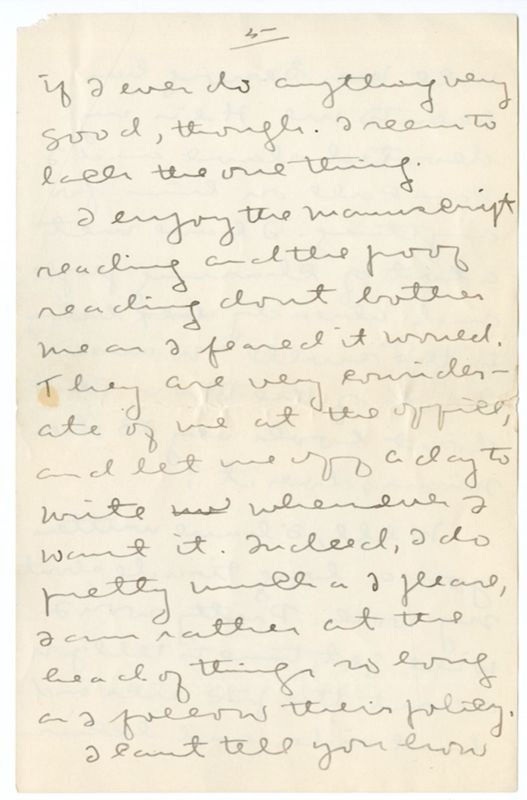 5
if I ever do anything very
good, though. I seem to
lack the one thing.
I enjoy the manuscript
reading and the proof
reading dont bother
me as I feared it would.
They are very consider-
ate of me at the office,
and let me off a day to
write whenever I
want it. Indeed, I do
pretty much as I please,
I am rather at the
head of things so long
as I follow their policy.
I cant tell you how